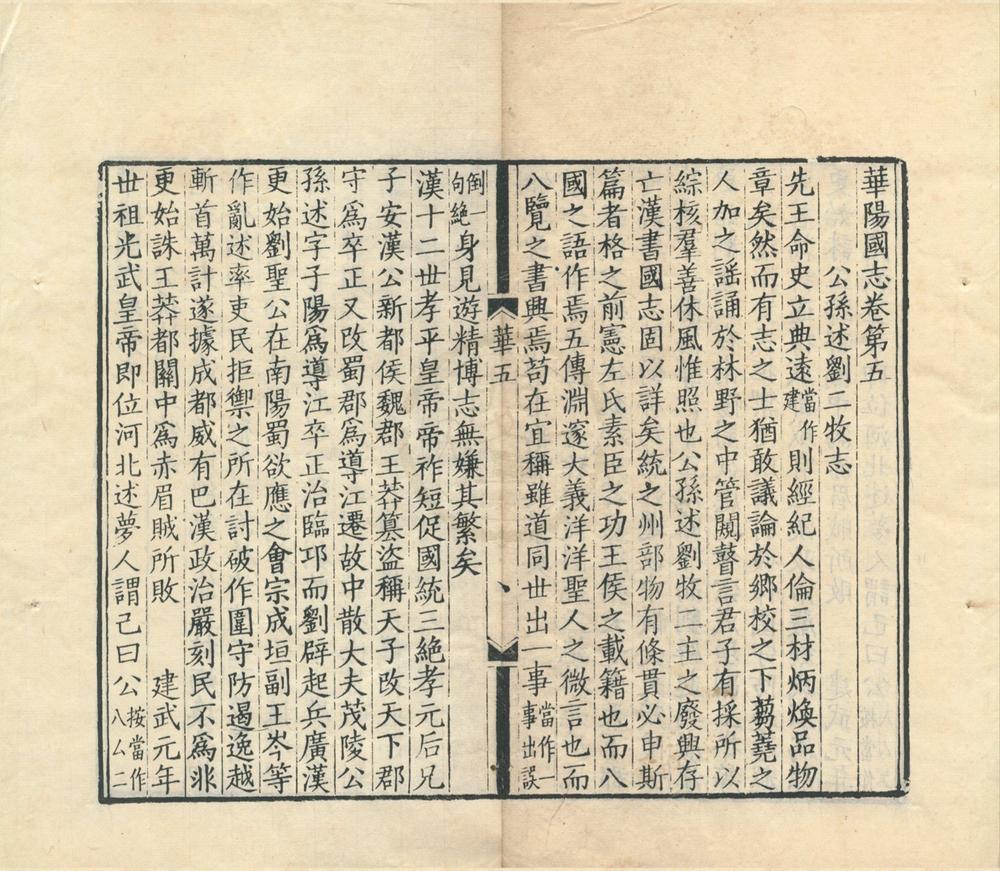 華陽國志卷第五
公孫述劉二牧志
先王命史立典遠當作建則經紀人倫三材炳煥品物
章矣然而有志之士猶敢議論於鄉校之下芻蕘之
人加之謡誦於林野之中管闚瞽言君子有採所以
綜核羣善休風惟照也公孫述劉牧二主之廢興存
亡漢書國志固以詳矣統之州部物有條貫必申斯
篇者格之前憲左氏素臣之功王侯之載籍也而八
國之語作焉五傳淵邃大義洋洋聖人之微言也而
八覽之書興焉苟在宜稱雖道同世出一事當作一事出誤
華五
倒一句絶身見遊精博志無嫌其繁矣
漢十二世孝平皇帝帝祚短促國統三絶孝元后兄
子安漢公新都侯魏郡王莽篡盜稱天子改天下郡
守爲卒正又改蜀郡爲導江遷故中散大夫茂陵公
孫述字子陽爲導江卒正治臨邛而劉辟起兵廣漢
更始劉聖公在南陽蜀欲應之會宗成垣副王岑等
作亂述率吏民拒禦之所在討破作圍守防遏逸越
斬首萬計遂據成都威有巴漢政治嚴刻民不爲非
更始誅王莽都關中爲赤眉賊所敗　建武元年
世祖光武皇帝即位河北述夢人謂己曰公按當作八厶二